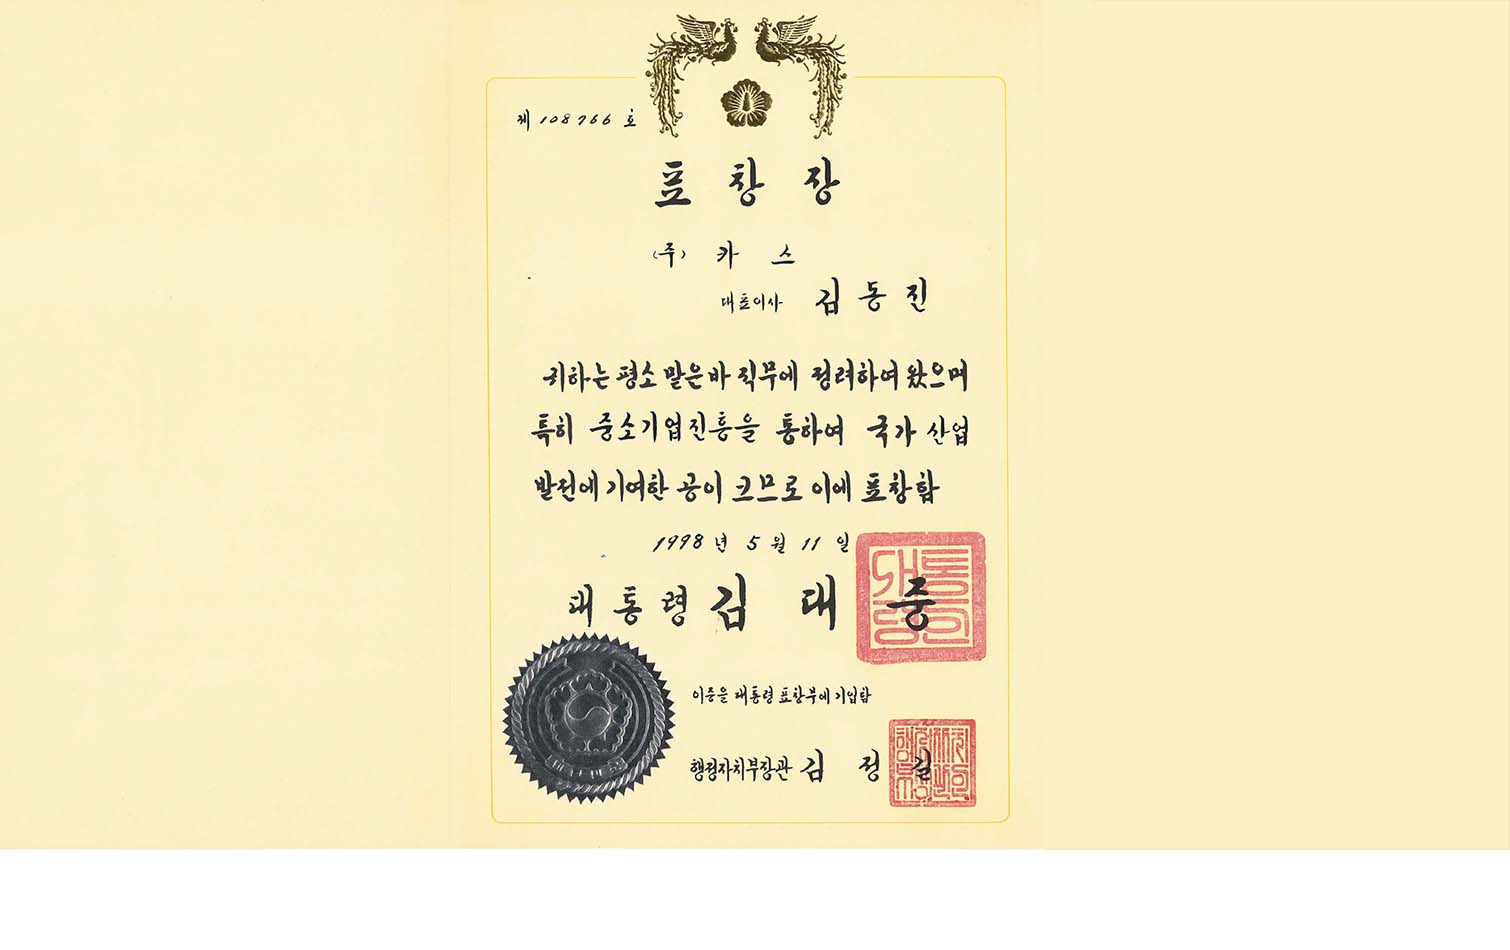 제 108766 호
표창장
(주) 카스
대표이사 김동진
귀하는 평소 맡은바 직무에 정려하여 왔으며
특히 중소기업진흥을 통하여 국가 산업
발전에 기여한 공이 크므로 이에 표창함
1998년 5월 11일
대통령 김대중
이증을 대통령 표창부에 기입함
행정자치부장관 김정길